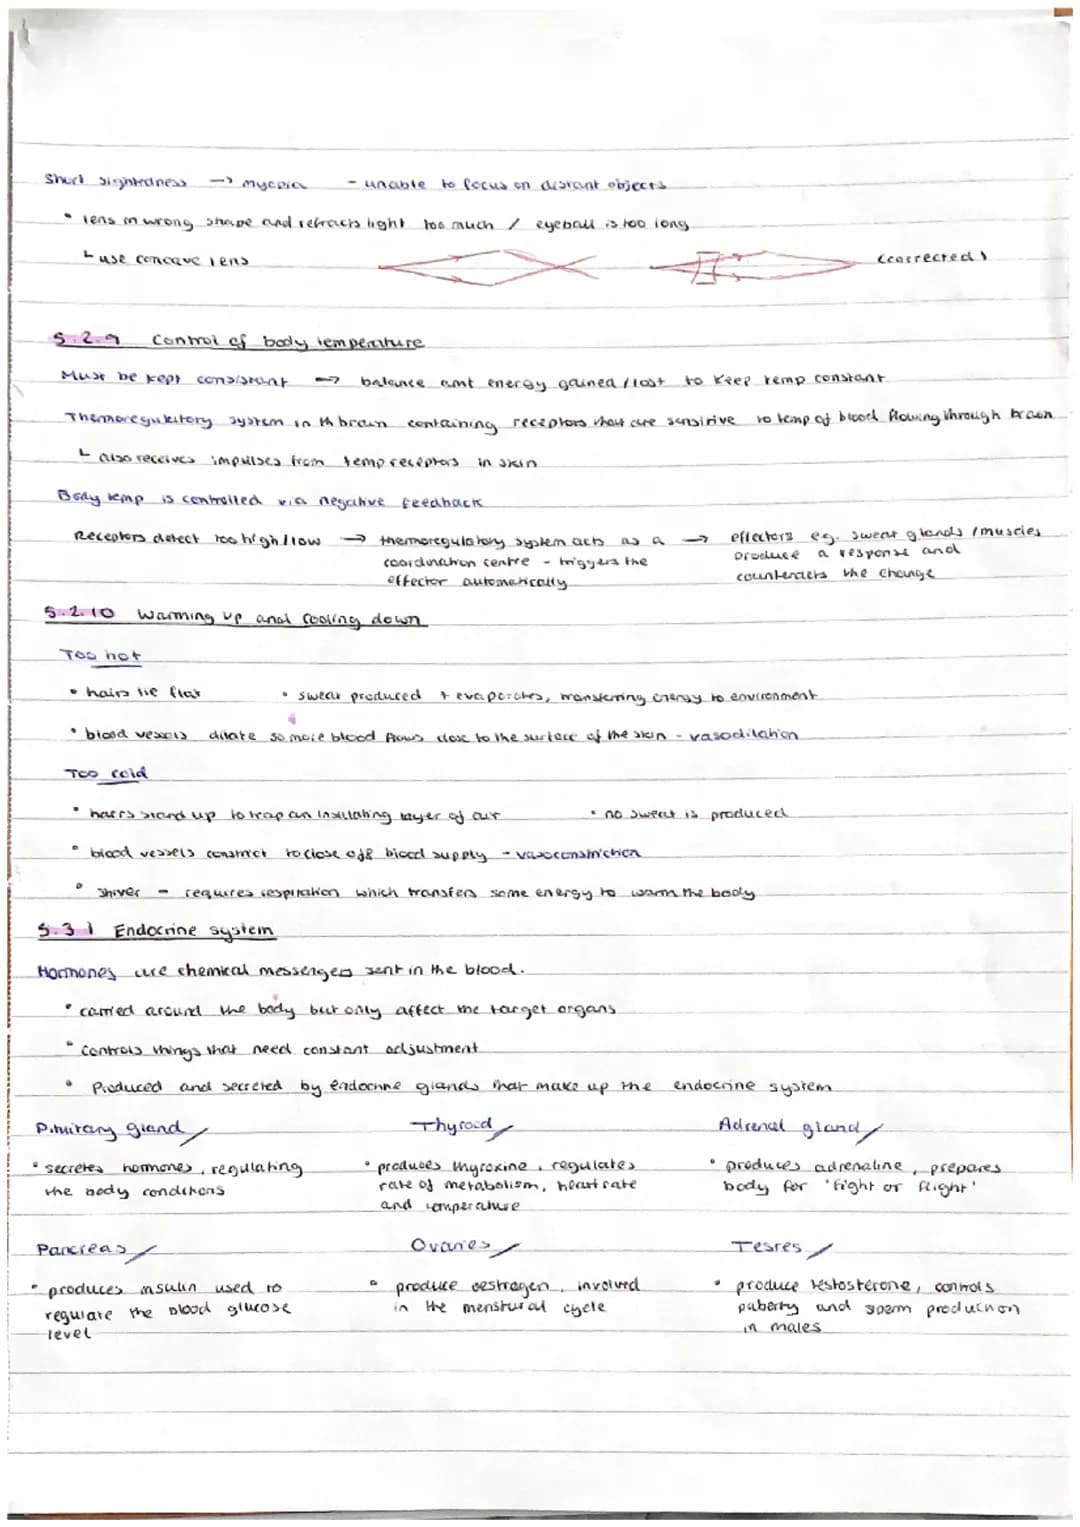 Short sightedness → myopia - unable to focus on distant objects
• lens in wrong shape and refracts light too much / eyeball is too long
└ use concave lens (corrected)
5.2.9 Control of body temperature
Must be kept consistant → balance amt energy gained / lost to keep temp constant
Thermoregulatory system in th brain containing receptors that are sensitive to temp of blood flowing through brain
└ also receives impulses from temp receptors in skin
Body temp is controlled via negative feedback
Receptors detect too high / low → thermoregulatory system acts as a → effectors eg. sweat glands / muscles
coordination centre - triggers the produce a response and
effector automatically counteracts the change
5.2.10 Warming up and cooling down
Too hot
• hairs lie flat • sweat produced + evaporates, transferring energy to environment
• blood vessels dilate so more blood flows close to the surface of the skin - vasodilation
Too cold
• hairs stand up to trap an insulating layer of air • no sweat is produced
• blood vessels constrict to close off blood supply - vasoconstriction
• shiver - requires respiration which transfers some energy to warm the body
5.3.1 Endocrine system
Hormones are chemical messengers sent in the blood.
• carried around the body but only affect the target organs
• controls things that need constant adjustment
• Produced and secreted by endocrine glands that make up the endocrine system
Pituitary gland / Thyroid / Adrenal gland /
• secretes hormones, regulating • produces thyroxine, regulates • produces adrenaline, prepares
the body conditions rate of metabolism, heart rate body for 'fight or flight'
and temperature
Pancreas / Ovaries / Testes /
• produces insulin used to • produce oestrogen, involved • produce testosterone, controls
regulate the blood glucose in the menstural cycle puberty and sperm production
level in males